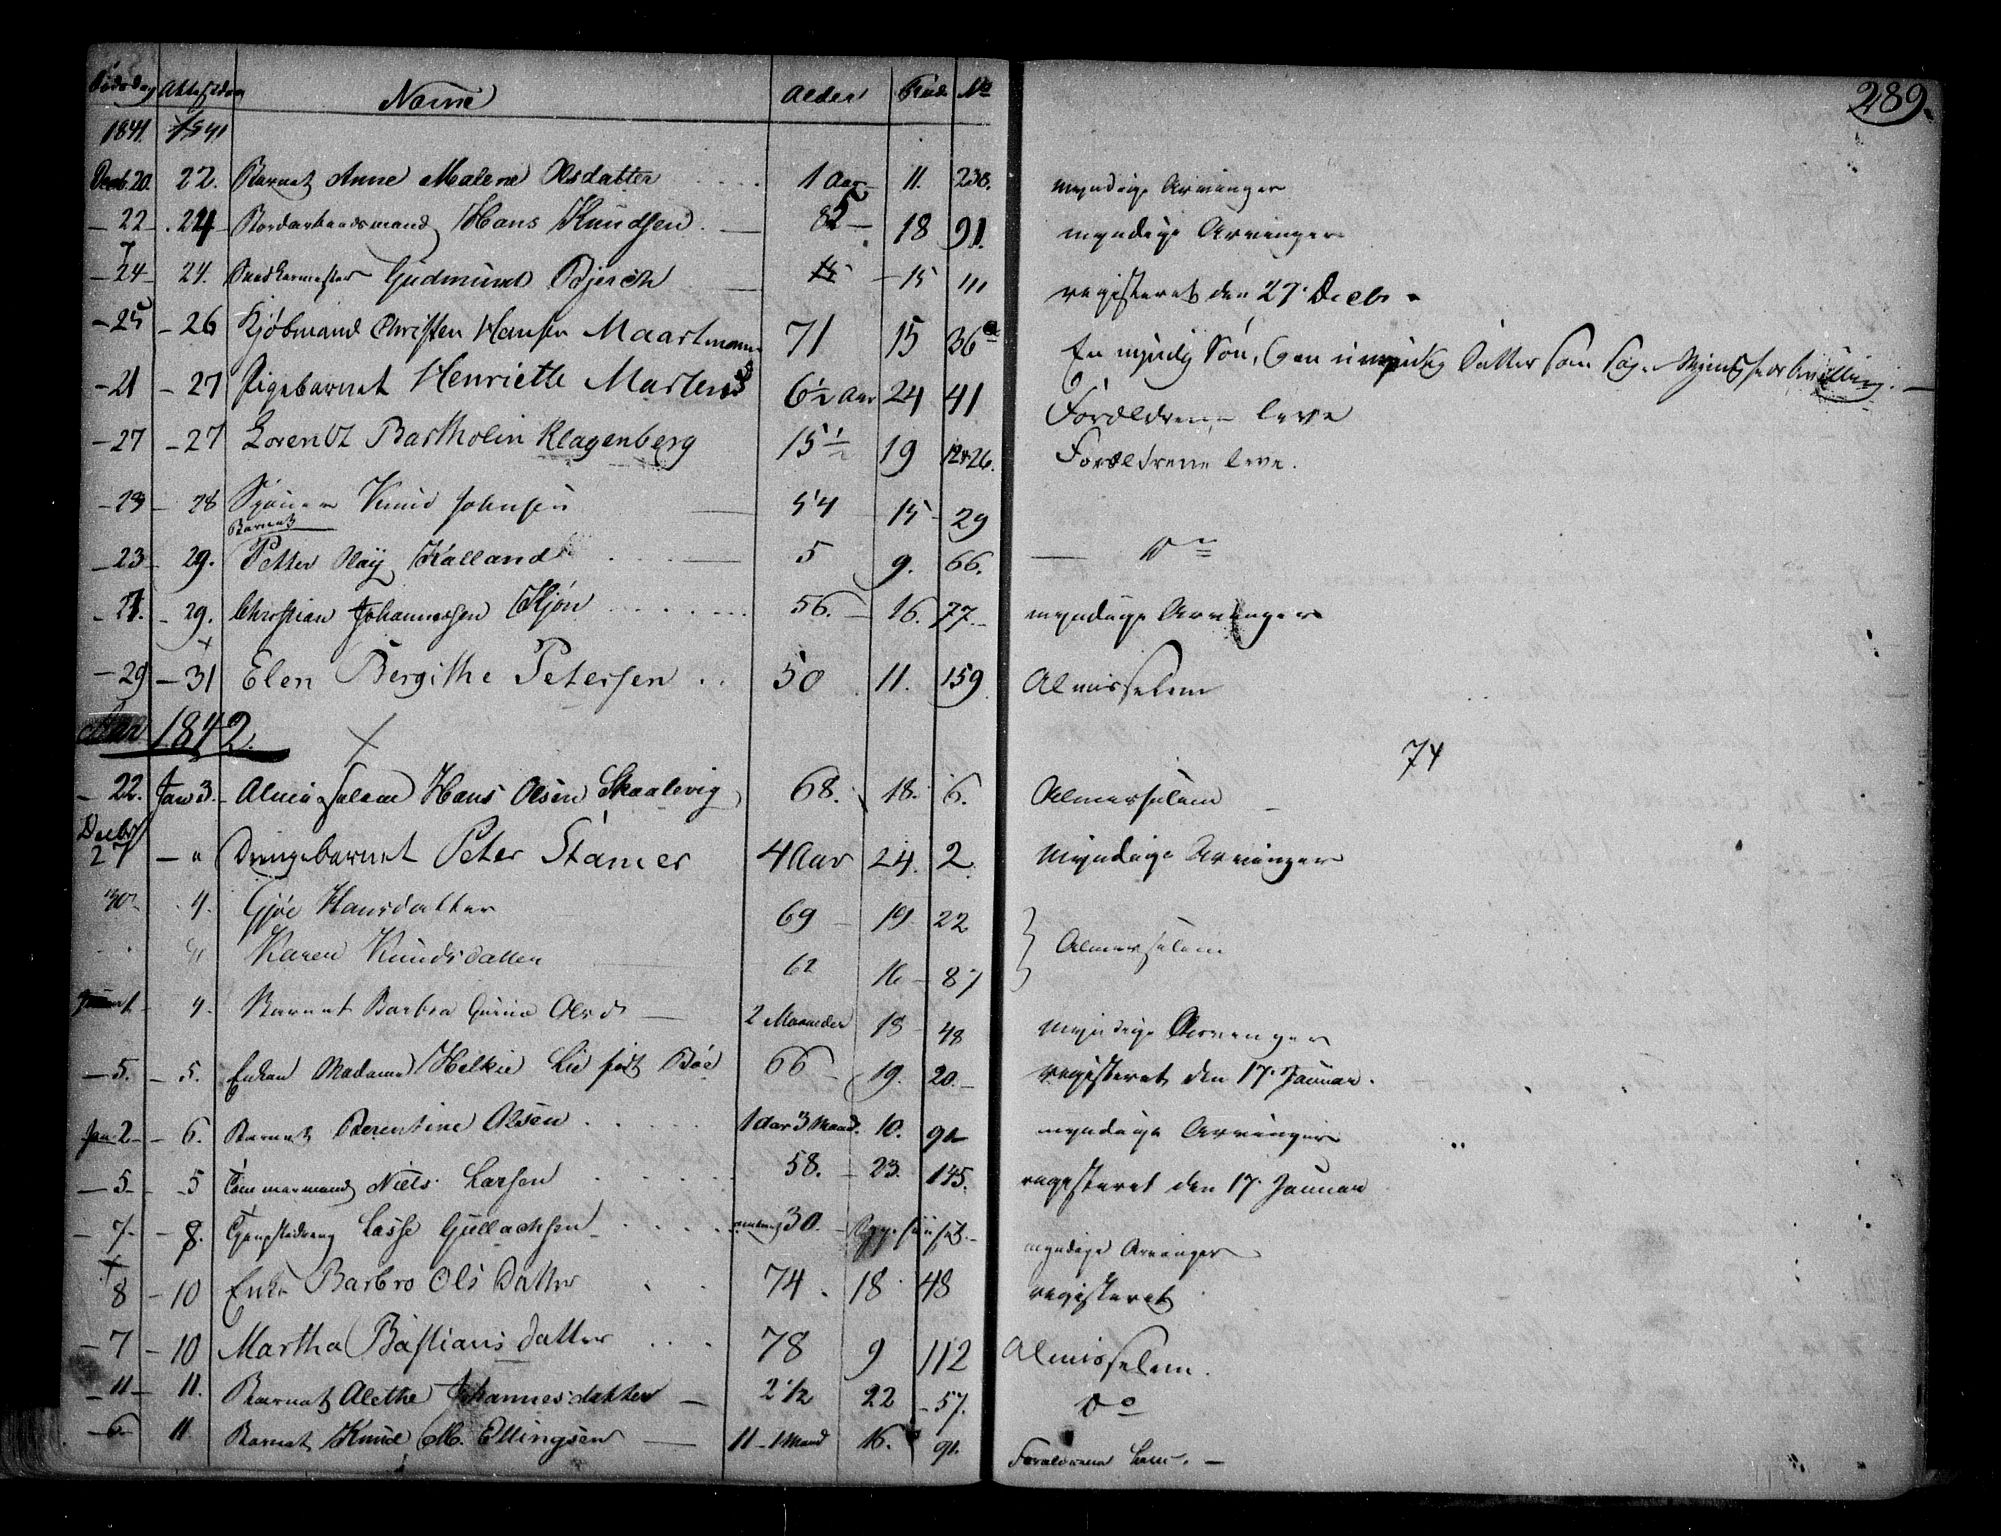 Dødsdag Attestdag Navne Alder Rode No 289.
1841. 1841
Decb. 20. 22. Barnet Anne Malene Olsdatter 1 Aar 11. 238. myndige Arvinger
22 24 Hans Knudsen 18 91. myndige Arvinger
24 24. Gudmund 15 registeret den 27. Decbr
25 26 Kjøbmand Christen Hansen Maartmann 71 15 36 En myndig Søn, og en umyndig Datter som
21 27 Pigebarnet Henriette Martens 6½ Aar 24 41 Forældrene leve
27 27 Lorentz Bartholin Klagenberg 15½ 19 12 & 26. Forældrene leve.
23 28 Knud Johnsen 54 15 29
Barnet
23 29. Petter Kalland 5 9. 66. Do
27. 29. Christian Johannessen 56. 16. 77. myndige Arvinger
29 31 Elen Bergithe Petersen 50 11. 159 Almisselem
Aar 1842. 74
22. Jan 3. Almisselem Hans Olsen Skaalevig 68. 18. 6. Almisselem
Decbr
27 " Drengebarnet Peter Stamer 4 Aar 24. 2. Myndige Arvinger
30 4. Gjøe Hansdatter 69 19 22
Karen Knudsdatter 62 16 87 Almisselem
4. Barnet Barbra 2 Maaneder 48 myndige Arvinger
5. 5. Enken Madame Helkie Lie født Bøe 66 19. 20. registeret den 17. Januar.
Jan. 2 6. Barnet Berentine Olsen 1 Aar 3 Maad. 10. myndige Arvinger
5 5 Tømmermand Niels Larsen 58. 23. 145. registeret den 17. Januar
7 8. Lasse Gullachsen 30. myndige Arvinger
8 10 Enke Barbro Ols Datter 74. 18 48 registeret
7 10 Martha Bastians datter 78 9 112 Almisselem.
11 11. Barnet Alethe Johannesdatter 2½ 22 57. Do
6 11 Barnet Knud M. Ellingsen 16. 91. Forældrene leve.